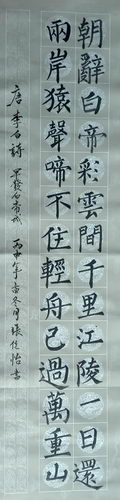 朝辭白帝彩雲間千里江陵一日還
兩岸猿聲啼不住輕舟已過萬重山
唐李白詩早發白帝城 丙申年